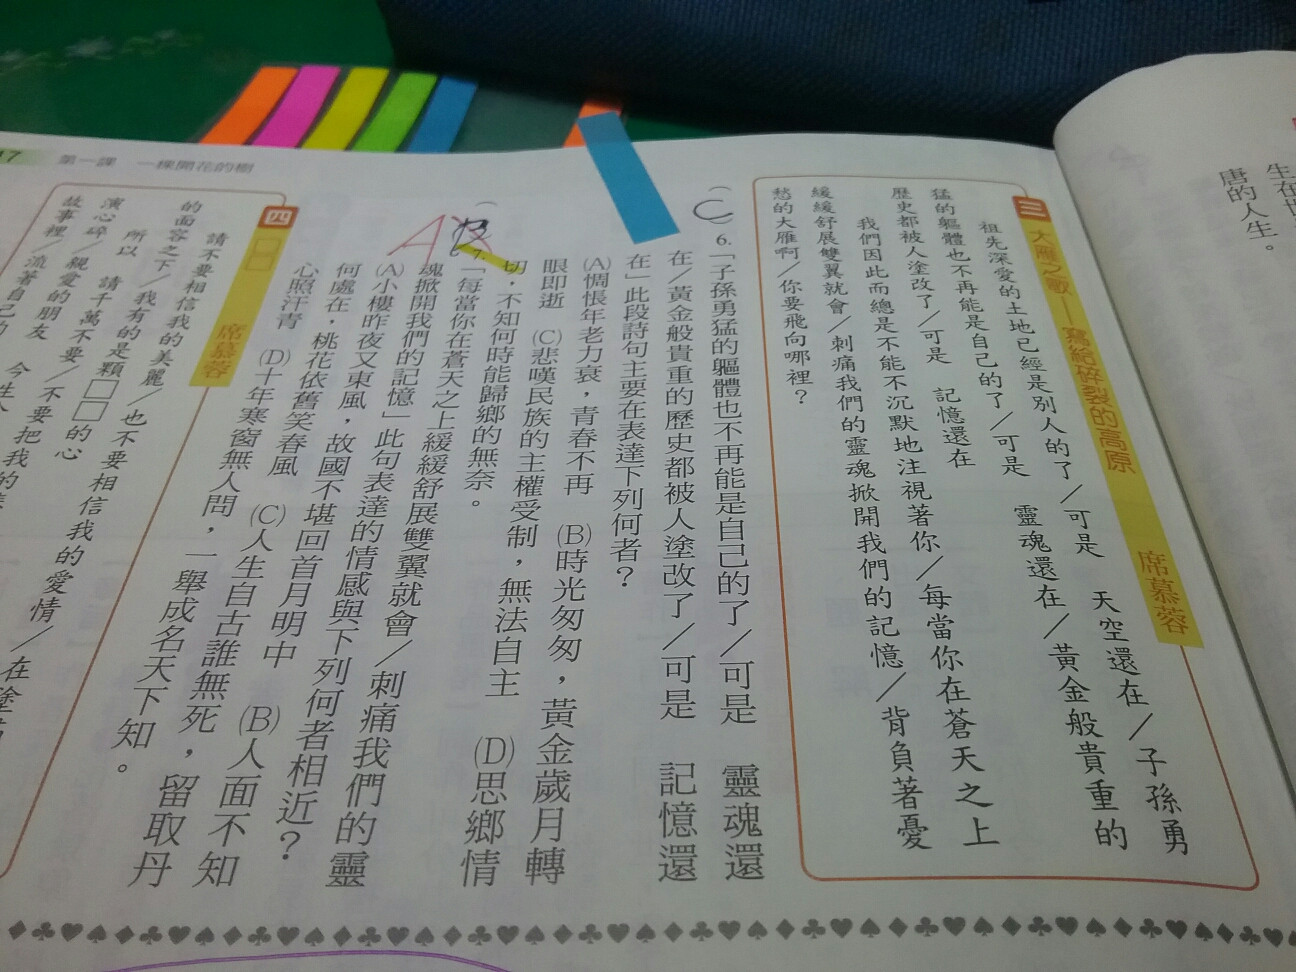 生在世
唐的人生。
三 大雁之歌——寫給碎裂的高原 席慕蓉
祖先深愛的土地已經是別人的了／可是 天空還在／子孫勇
猛的軀體也不再能是自己的了／可是 靈魂還在／黃金般貴重的
歷史都被人塗改了／可是 記憶還在
我們因此而總是不能不沉默地注視著你／每當你在蒼天之上
緩緩舒展雙翼就會／刺痛我們的靈魂掀開我們的記憶／背負著憂
愁的大雁啊／你要飛向哪裡？
（C 6.「子孫勇猛的軀體也不再能是自己的了／可是 靈魂還
在／黃金般貴重的歷史都被人塗改了／可是 記憶還
在」此段詩句主要在表達下列何者？
(A)惆悵年老力衰，青春不再 (B)時光匆匆，黃金歲月轉
眼即逝 (C)悲嘆民族的主權受制，無法自主 (D)思鄉情
切，不知何時能歸鄉的無奈。
（A 7.「每當你在蒼天之上緩緩舒展雙翼就會／刺痛我們的靈
魂掀開我們的記憶」此句表達的情感與下列何者相近？
(A)小樓昨夜又東風，故國不堪回首月明中 (B)人面不知
何處在，桃花依舊笑春風 (C)人生自古誰無死，留取丹
心照汗青 (D)十年寒窗無人問，一舉成名天下知。
四 □□ 席慕蓉
請不要相信我的美麗／也不要相信我的愛情／在塗
的面容之下／我有的是顆□□的心
所以 請千萬不要／不要把我的
演心碎／親愛的朋友 今生
故事裡／流著自己的
17 第一課 一棵開花的樹